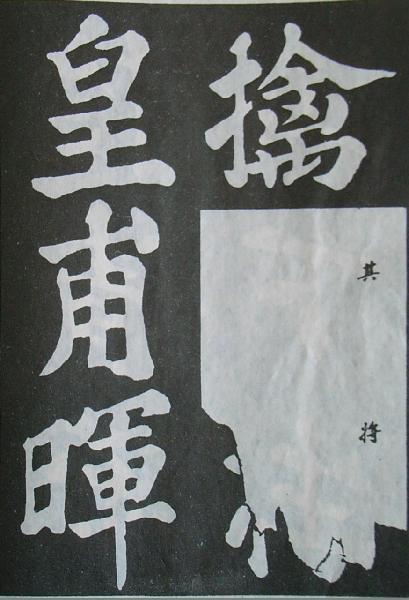 擒其将
皇甫暉